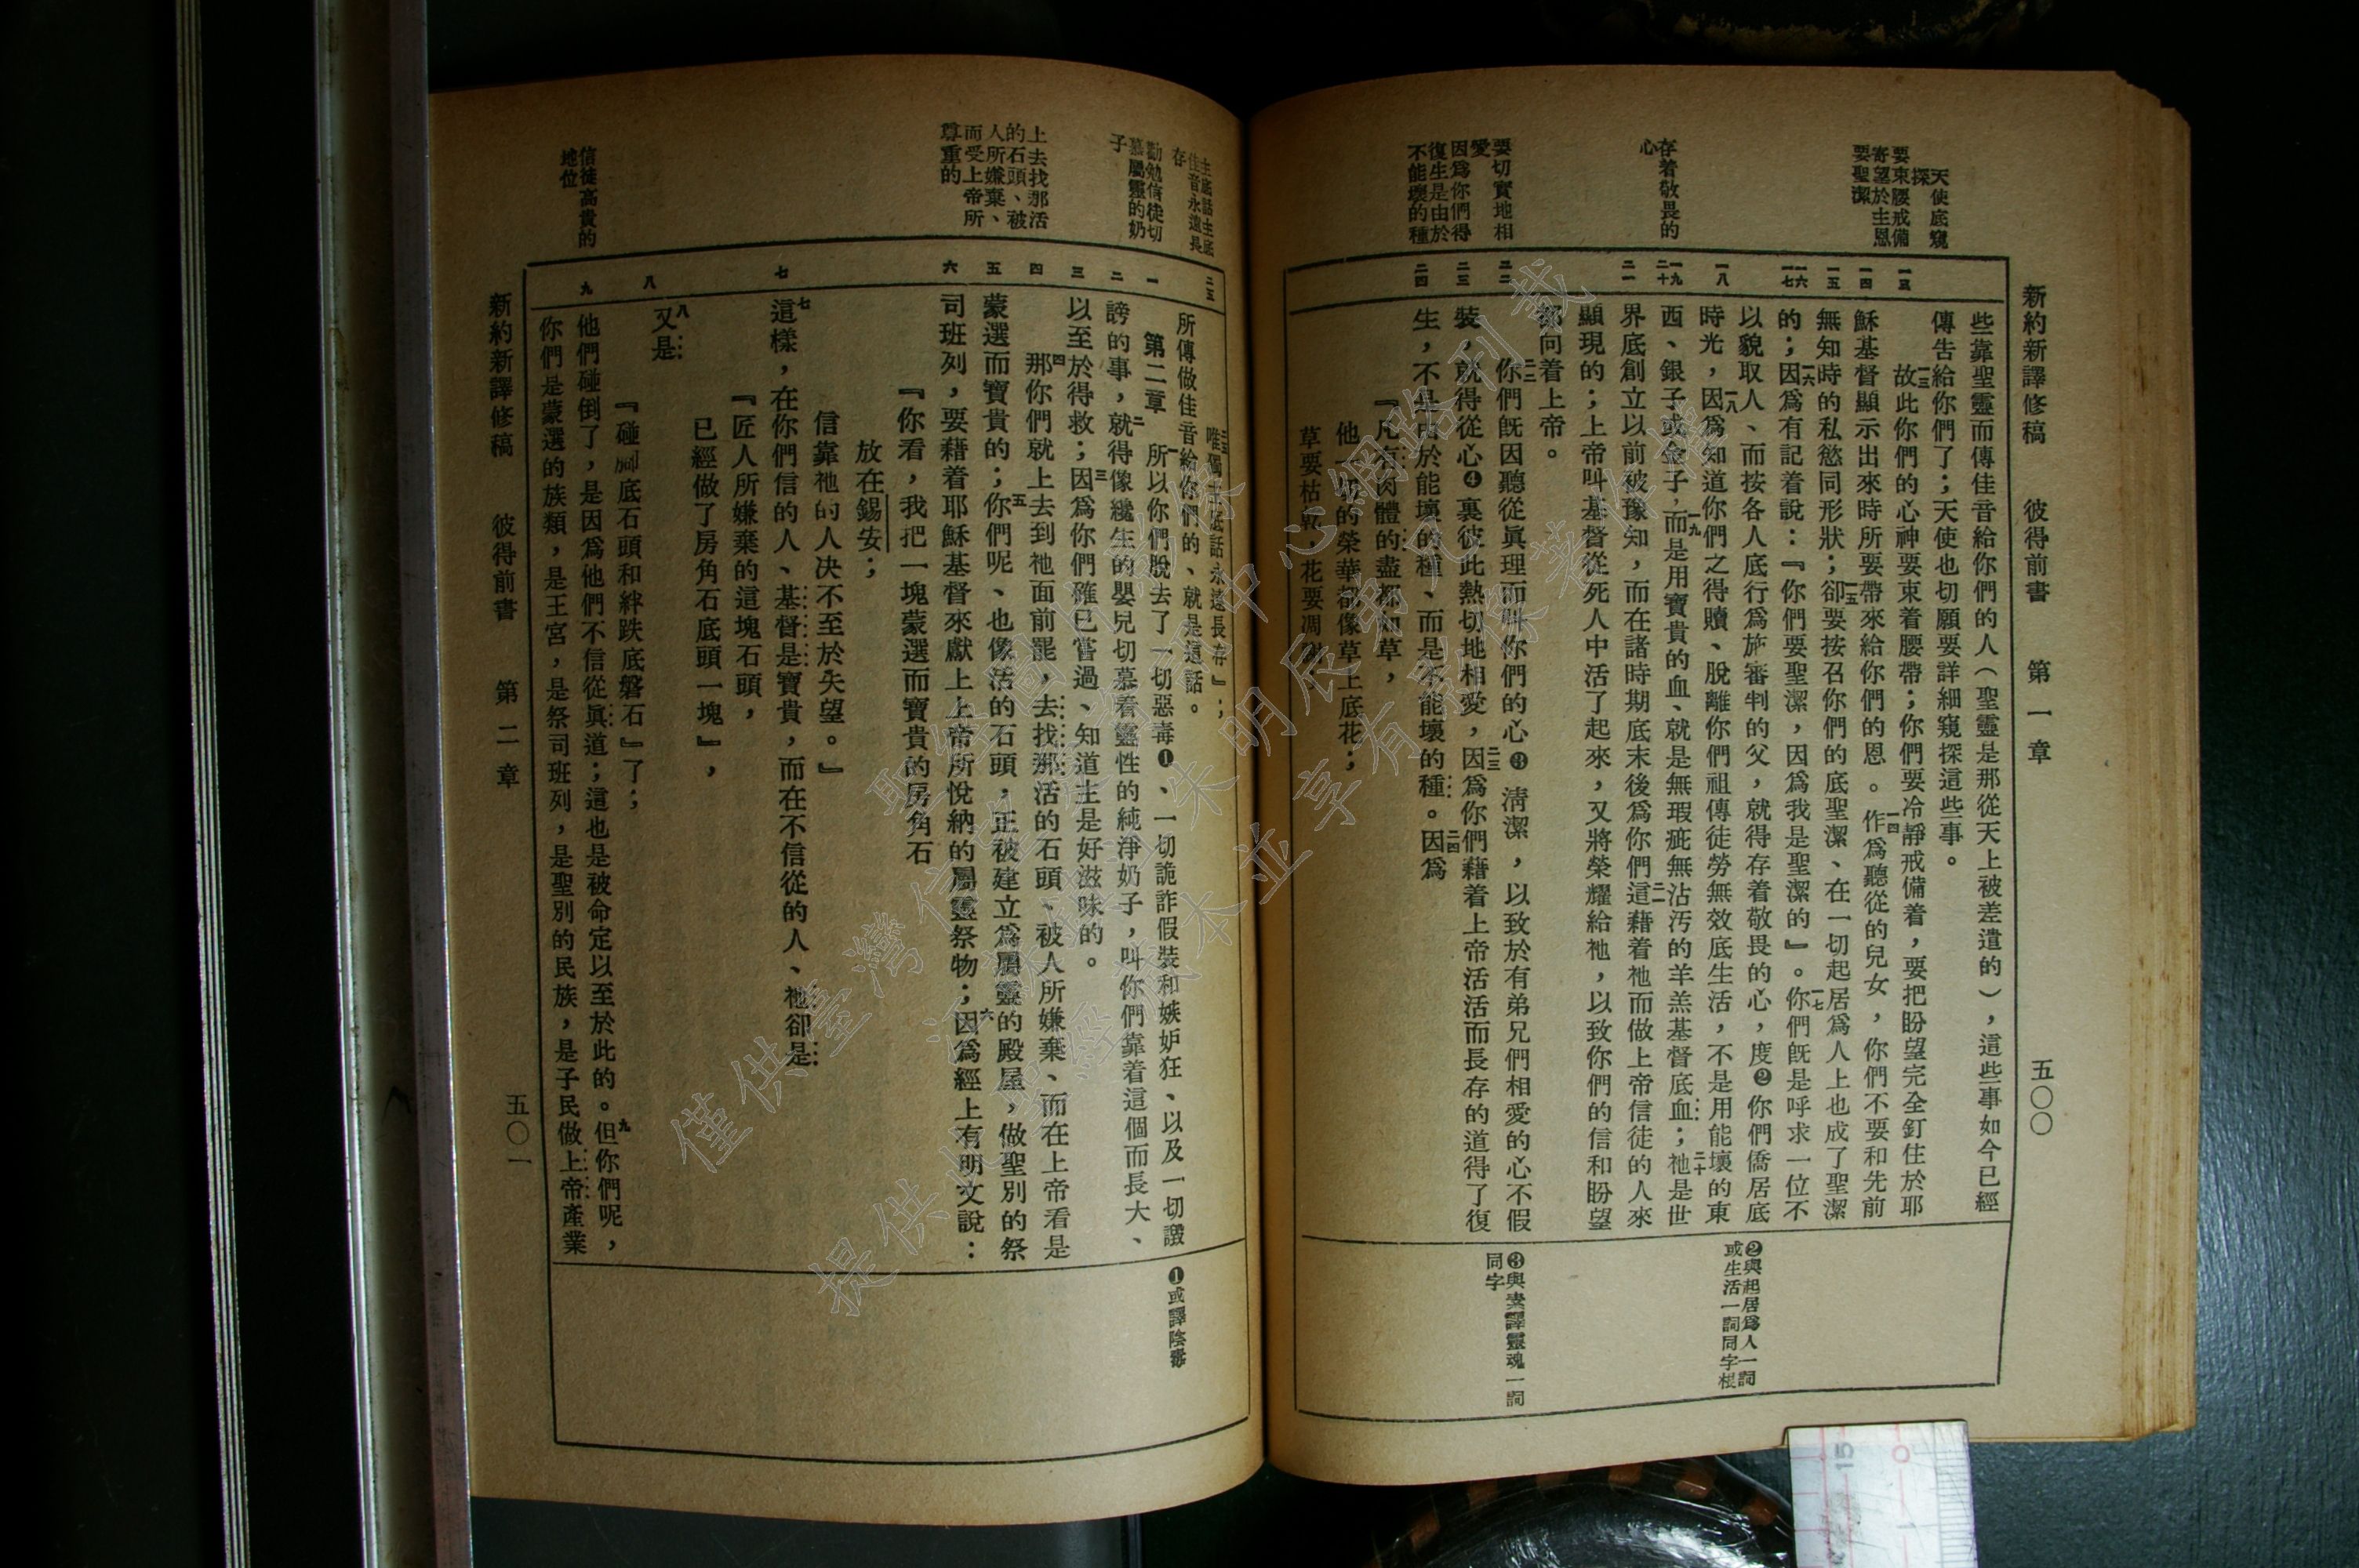 新約新譯修稿 彼得前書 第一章 五〇〇
天使底窺
探
要束腰戒備
寄望於主恩
要聖潔
存着敬畏的
心
要切實地相
愛
因爲你們得
復生是由於
不能壞的種
一三
一四
一五
一六
一七
一八
一九
二十
二一
二二
二三
二四
些靠聖靈而傳佳音給你們的人（聖靈是那從天上被差遣的），這些事如今已經
傳告給你們了；天使也切願要詳細窺探這些事。
一三故此你們的心神要束着腰帶；你們要冷靜戒備着，要把盼望完全釘住於耶
穌基督顯示出來時所要帶來給你們的恩。一四作爲聽從的兒女，你們不要和先前
無知時的私慾同形狀；一五卻要按召你們的底聖潔、在一切起居爲人上也成了聖潔
的；一六因爲有記着說：『你們要聖潔，因爲我是聖潔的』。一七你們旣是呼求一位不
以貌取人、而按各人底行爲施審判的父，就得存着敬畏的心，度❷你們僑居底
時光，一八因爲知道你們之得贖、脫離你們祖傳徒勞無效底生活，不是用能壞的東
西、銀子或金子，一九而是用寶貴的血、就是無瑕疵無沾汚的羊羔基督底血；二十祂是世
界底創立以前被豫知，而在諸時期底末後爲你們二一這藉着祂而做上帝信徒的人來
顯現的；上帝叫基督從死人中活了起來，又將榮耀給祂，以致你們的信和盼望
都向着上帝。
二二你們旣因聽從眞理而叫你們的心❸清潔，以致於有弟兄們相愛的心不假
裝，就得從心❹裏彼此熱切地相愛，二三因爲你們藉着上帝活活而長存的道得了復
生，不是由於能壞的種、而是不能壞的種。二四因爲
『凡有肉體的盡都如草，
他一切的榮華都像草上底花；
草要枯乾，花要凋謝，
❷與起居爲人一詞
或生活一詞同字根
❸與素譯靈魂一詞
同字
主底話主底
佳音永遠長
存
勸勉信徒切
慕屬靈的奶
子
上去找那活
的石頭、被
人所嫌棄、
而受上帝所
尊重的
信徒高貴的
地位
二五
一
二
三
四
五
六
七
八
九
二五唯獨主底話永遠長存』；
所傳做佳音給你們的、就是這話。
第二章 一所以你們脫去了一切惡毒❶、一切詭詐假裝和嫉妒狂、以及一切譭
謗的事，二就得像纔生的嬰兒切慕着靈性的純淨奶子，叫你們靠着這個而長大、
以至於得救；三因爲你們確已嘗過、知道主是好滋味的。
四那你們就上去到祂面前罷，去找那活的石頭、被人所嫌棄、而在上帝看是
蒙選而寶貴的；五你們呢、也像活的石頭，正被建立爲屬靈的殿屋，做聖別的祭
司班列，要藉着耶穌基督來獻上上帝所悅納的屬靈祭物；六因爲經上有明文說：
『你看，我把一塊蒙選而寶貴的房角石
放在錫安；
信靠祂的人決不至於失望。』
七這樣，在你們信的人、基督是寶貴，而在不信從的人、祂卻是
『匠人所嫌棄的這塊石頭，
已經做了房角石底頭一塊』，
八又是
『碰脚底石頭和絆跌底磐石』了；
他們碰倒了，是因爲他們不信從眞道；這也是被命定以至於此的。九但你們呢，
你們是蒙選的族類，是王宮，是祭司班列，是聖別的民族，是子民做上帝產業
❶或譯陰毒
新約新譯修稿 彼得前書 第二章 五〇一